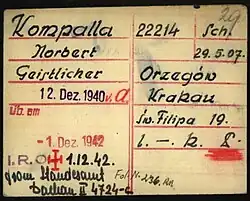 29
Kompalla 22214 Sch.
Norbert 29.5.07.
Geistlicher Orzegów
12. Dez. 1940 v. A Krakau
üb. am św. Filipa 19.
- 1. Dez. 1942 l. - k. I.
I.R.O 1.12.42.
from Standesamt Fol. Nr. 236.
Dachau II 4724-